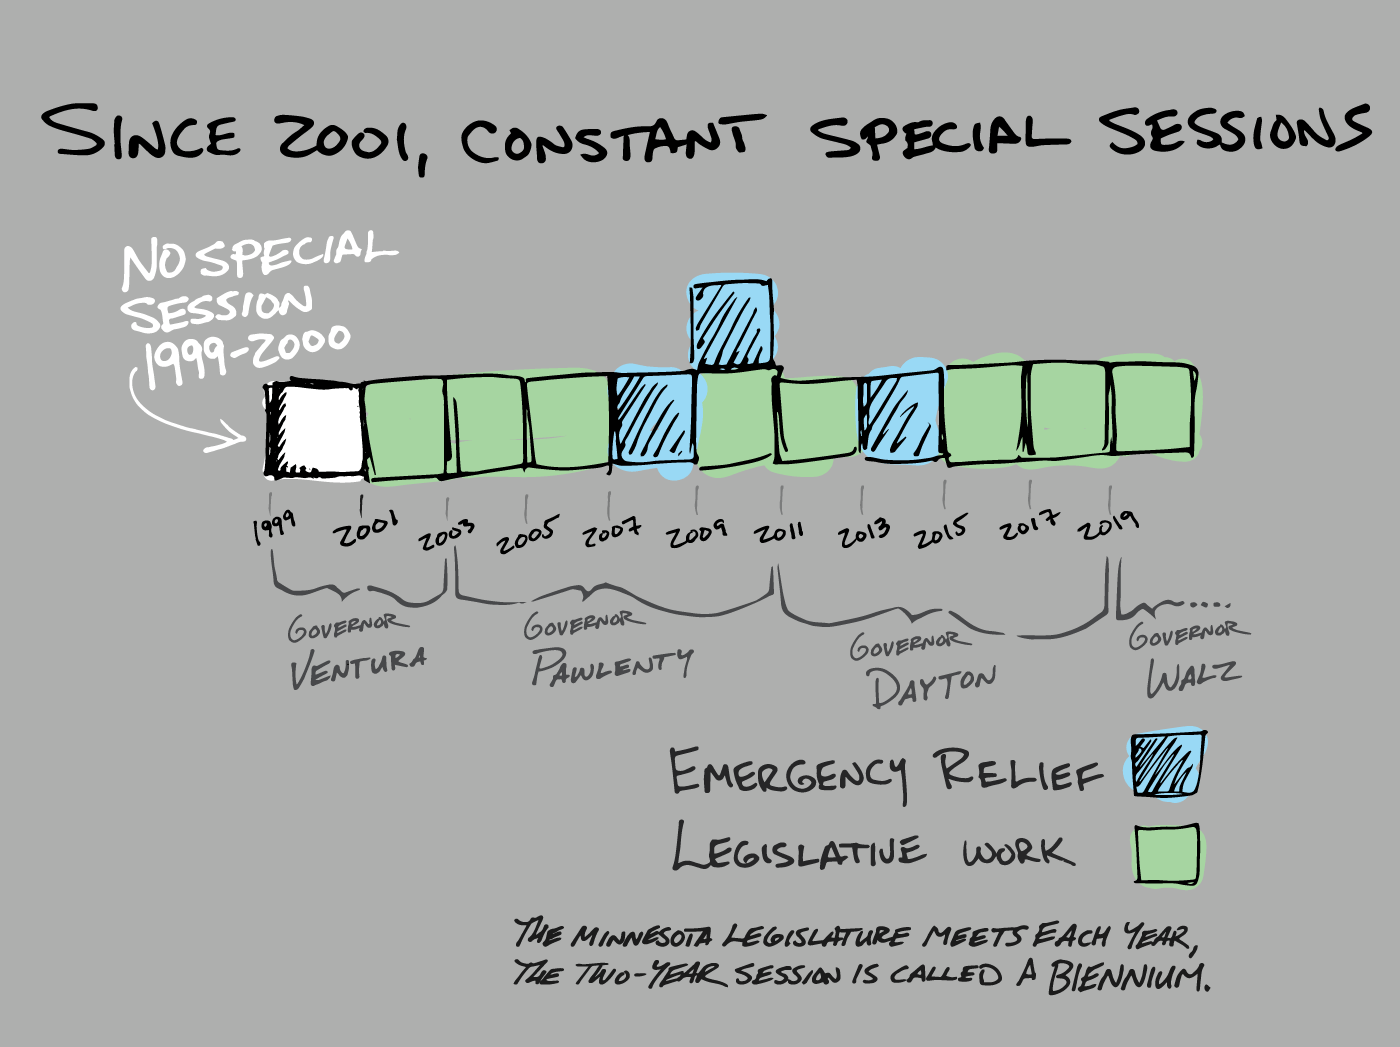 SINCE 2001, CONSTANT SPECIAL SESSIONS
NO SPECIAL
SESSION
1999-2000
1999 2001 2003 2005 2007 2009 2011 2013 2015 2017 2019
GOVERNOR
VENTURA
GOVERNOR
PAWLENTY
GOVERNOR
DAYTON
GOVERNOR
WALZ
EMERGENCY RELIEF
LEGISLATIVE WORK
THE MINNESOTA LEGISLATURE MEETS EACH YEAR,
THE TWO-YEAR SESSION IS CALLED A BIENNIUM.